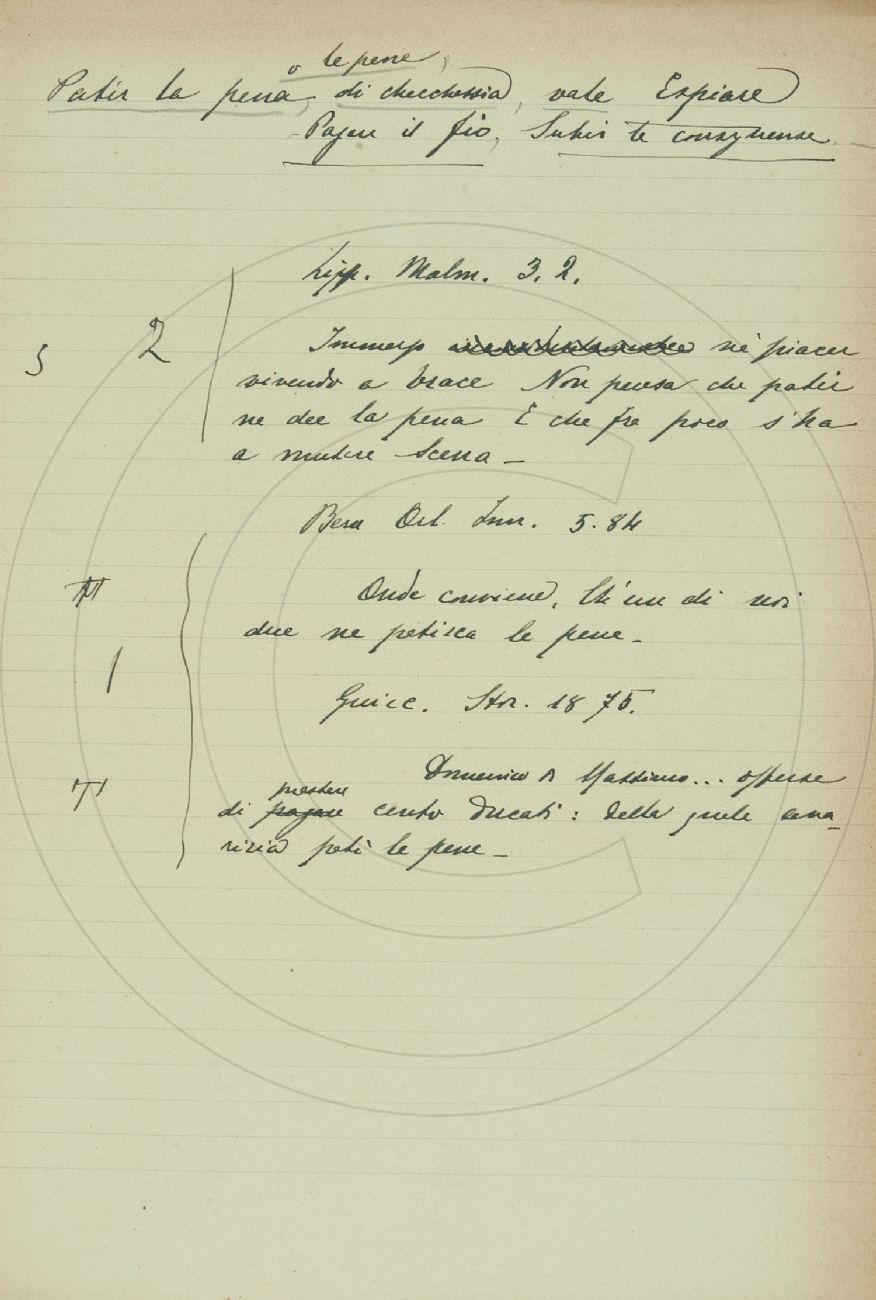 o le pene,
Patir la pena, di checchessia, vale Espiare
Pagare il fio, Subir le conseguenze
Lipp. Malm. 3. 2.
2 Immerso ne' piacer
5 vivendo a brace Non pensa che patir
ne dee la pena E che fra poco s'ha
a mutare scena –
Bern Orl. Inn. 5. 84
Onde conviene, Ch'un di noi
due ne patisca le pene –
1
Guicc. Stor. 18 75.
Domenico di Massimo... offerse
prestare
di pagare cento ducati: della quale ava-
rizia patì le pene –